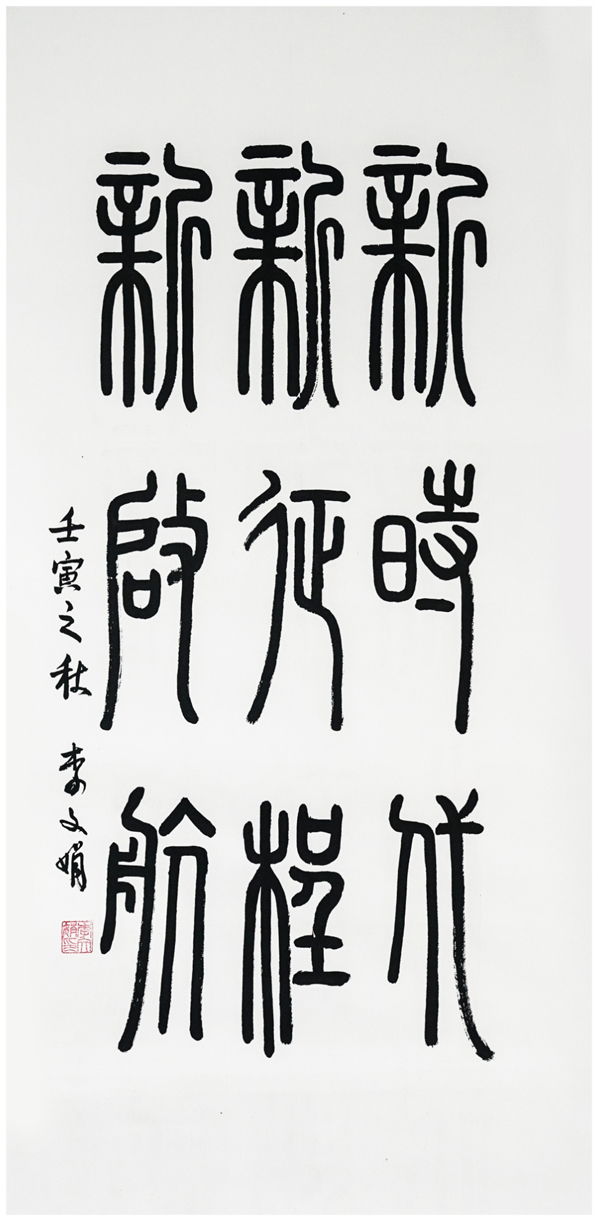 新時代
新征程
新啟航
壬寅之秋 李文娟